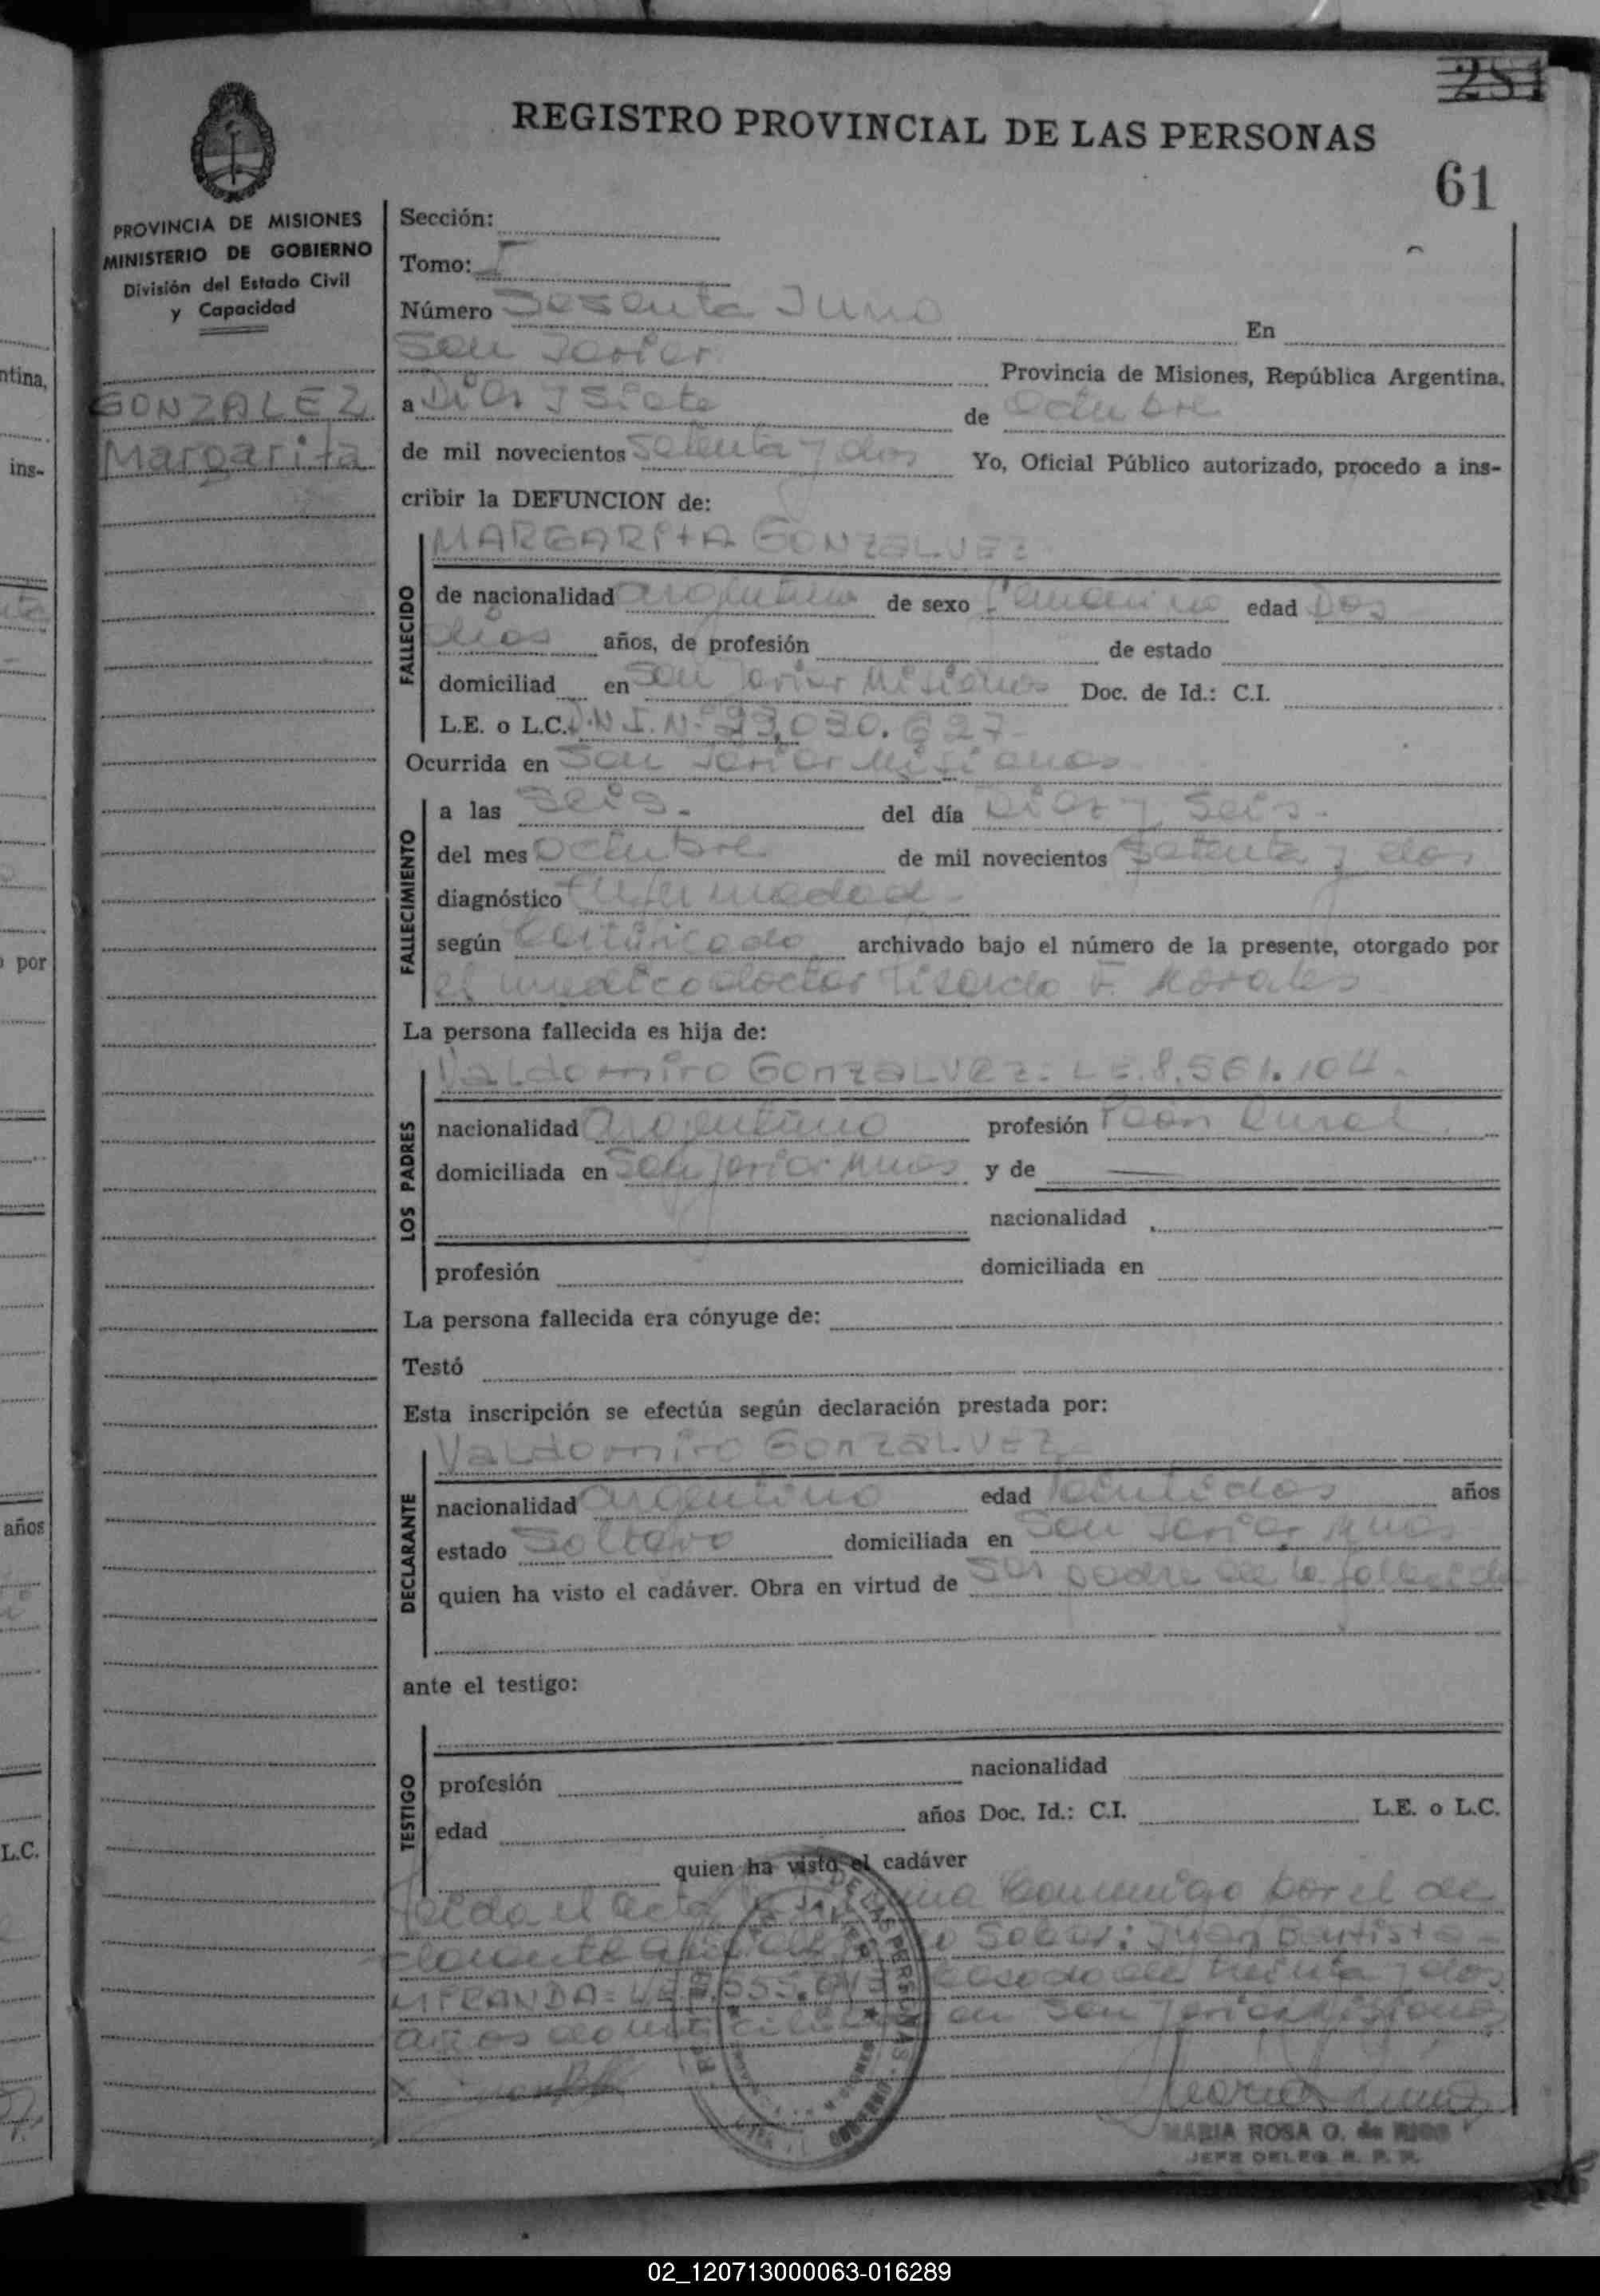 281
REGISTRO PROVINCIAL DE LAS PERSONAS
61
PROVINCIA DE MISIONES
MINISTERIO DE GOBIERNO
División del Estado Civil
y Capacidad
GONZALEZ
Margarita
Sección:
Tomo: I
Número Sesenta Juno En
San Javier Provincia de Misiones, República Argentina.
a Diez y Siete de Octubre
de mil novecientos setenta y dos Yo, Oficial Público autorizado, procedo a ins-
cribir la DEFUNCION de:
FALLECIDO
MARGARITA GONZALVEZ
de nacionalidad argentina de sexo femenino edad Dos
días años, de profesión de estado
domiciliad en San Javier Misiones Doc. de Id.: C.I.
L.E. o L.C. D.N.I. Nº 23.030.627
Ocurrida en San Javier Misiones
FALLECIMIENTO
a las seis. del día Diez y Seis.
del mes Octubre de mil novecientos setenta y dos
diagnóstico Enfermedad
según Certificado archivado bajo el número de la presente, otorgado por
el medico doctor Lisardo F. Morales
La persona fallecida es hija de:
LOS PADRES
Valdomiro GonzaLvez: L.E. 8.561.104.
nacionalidad argentino profesión Peón Rural
domiciliada en San Javier Mnes y de
nacionalidad
profesión domiciliada en
La persona fallecida era cónyuge de:
Testó
Esta inscripción se efectúa según declaración prestada por:
DECLARANTE
Valdomiro GonzaLvez
nacionalidad argentino edad Veintidos años
estado Soltero domiciliada en San Javier Mnes
quien ha visto el cadáver. Obra en virtud de ser padre de la fallecida
ante el testigo:
TESTIGO
profesión nacionalidad
edad años Doc. Id.: C.I. L.E. o L.C.
quien ha visto el cadáver
Leida el acta firma conmigo por el de
clarante Juan Bautista
MIRANDA casado de treinta y dos
años domiciliado en San Javier Misiones
MARIA ROSA O. de RIOS
JEFE DELEG. R. P. P.
ntina,
ins-
por
años
L.C.
02_120713000063-016289